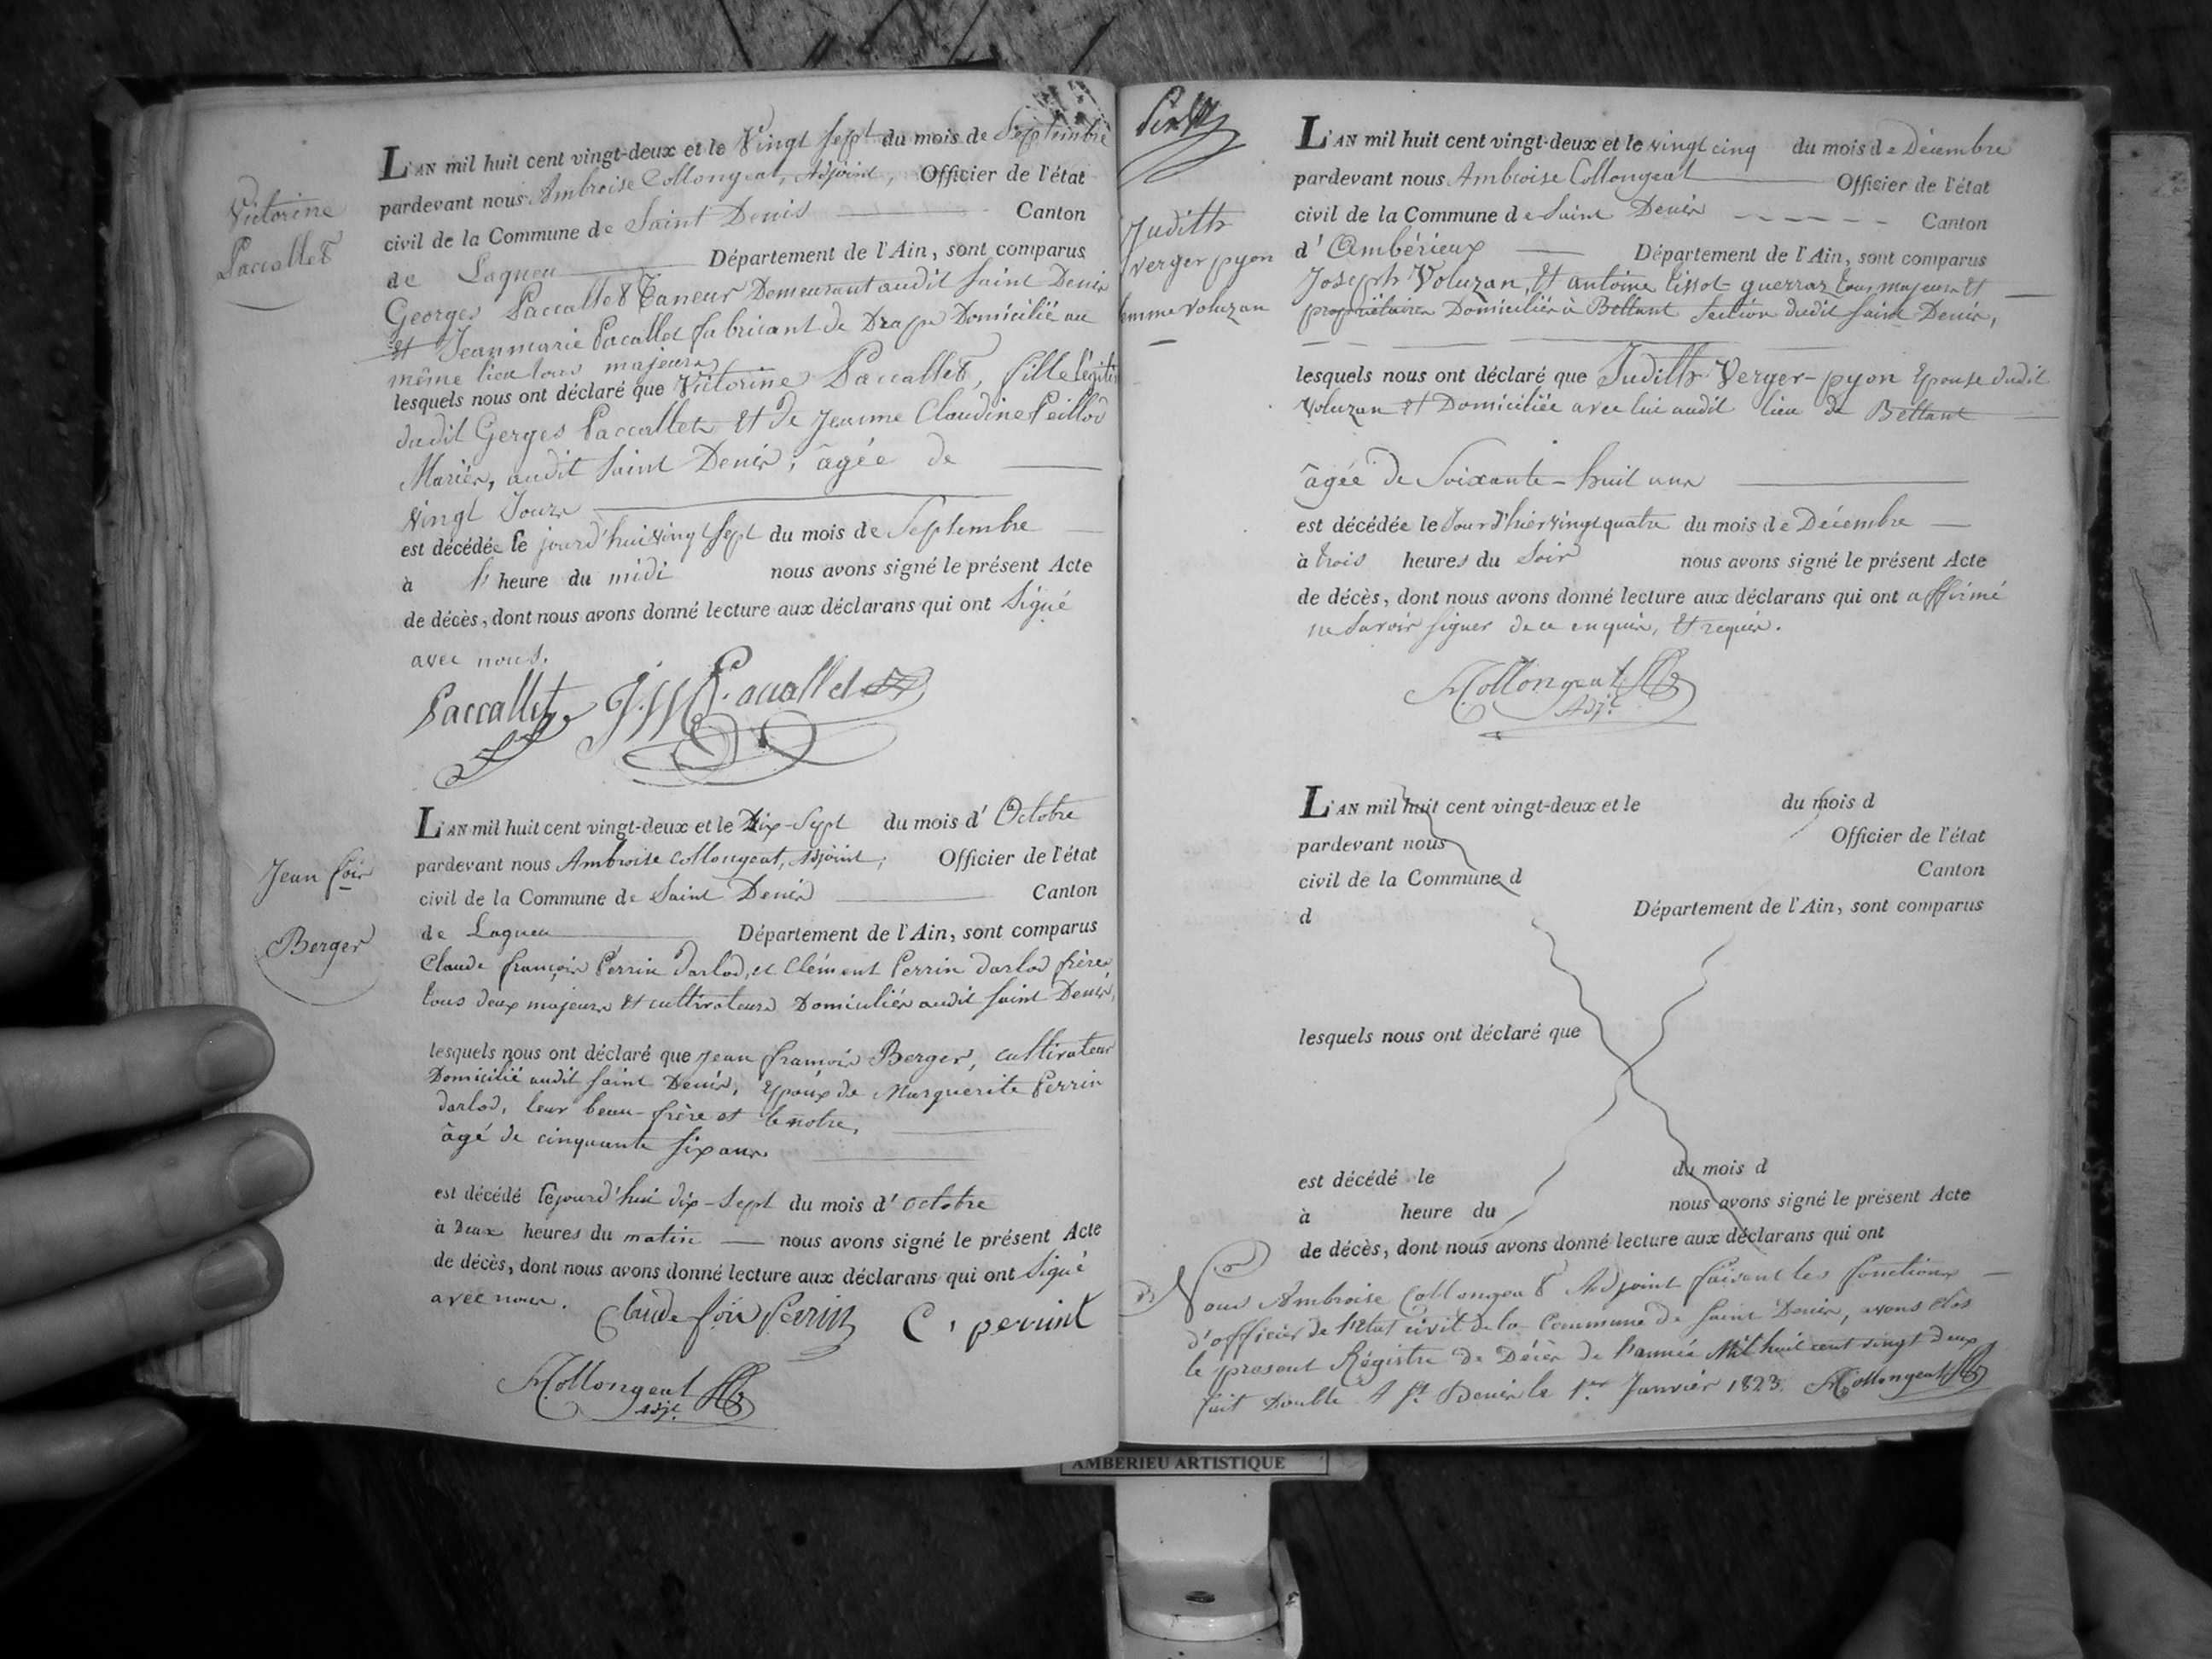 Victorine
Paccallet
L'AN mil huit cent vingt-deux et le Vingt Sept du mois de Septembre
pardevant nous Ambroise Collongeat, Adjoint, Officier de l'état
civil de la Commune de Saint Denis Canton
de Lagneu Département de l'Ain, sont comparus
Georges Paccallet Taneur Demeurant audit Saint Denis
et Jeanmarie Pacallet fabricant de Drap Domicilié au
même lieu tous majeurs
lesquels nous ont déclaré que Victorine Paccallet, fille légit
dudit Gerges Paccallet et de Jeanne Claudine Peillod
Mariés, audit Saint Denis, âgée de
vingt Jours
est décédée le jourd'hui vingt Sept du mois de Septembre
à heure du midi nous avons signé le présent Acte
de décès, dont nous avons donné lecture aux déclarans qui ont Signé
avec nous.
Paccallet J M Pacallet
Jean fois
Berger
L'AN mil huit cent vingt-deux et le Dix-Sept du mois d'Octobre
pardevant nous Ambroise Collongeat, Adjoint, Officier de l'état
civil de la Commune de Saint Denis Canton
de Lagneu Département de l'Ain, sont comparus
Claude françois Perrin darlod, et Clément Perrin darlod frères
tous deux majeurs et cultivateurs Domiciliés audit Saint Denis,
lesquels nous ont déclaré que Jean françois Berger, cultivateur
Domicilié audit Saint Denis, Epoux de Marguerite Perrin
darlod, leur beau-frère et le notre,
âgé de cinquante six ans
est décédé le jourd'hui dix-Sept du mois d'octobre
à Deux heures du matin nous avons signé le présent Acte
de décès, dont nous avons donné lecture aux déclarans qui ont Signé
avec nous.
Claude fois Perrin C, perrint
A Collongeat
adjt
Judith
verger pyon
femme voluzan
L'AN mil huit cent vingt-deux et le vingt cinq du mois de Décembre
pardevant nous Ambroise Collongeat Officier de l'état
civil de la Commune de Saint Denis Canton
d'Ambérieux Département de l'Ain, sont comparus
Joseph Voluzan, et antoine tissot guerraz tous majeurs et
propriétaires Domiciliés à Bettant Section dudit Saint Denis,
lesquels nous ont déclaré que Judith Verger-pyon Epouse dudit
Voluzan et Domiciliée avec lui audit lieu de Bettant
âgée de Soixante-huit ans
est décédée le Jour d'hier vingt quatre du mois de Décembre
à trois heures du Soir nous avons signé le présent Acte
de décès, dont nous avons donné lecture aux déclarans qui ont affirmé
ne Savoir Signer de ce enquis, et requis.
A Collongeat
Adjt
L'AN mil huit cent vingt-deux et le du mois d
pardevant nous Officier de l'état
civil de la Commune d Canton
d Département de l'Ain, sont comparus
lesquels nous ont déclaré que
est décédé le du mois d
à heure du nous avons signé le présent Acte
de décès, dont nous avons donné lecture aux déclarans qui ont
Nous Ambroise Collongeat Adjoint faisant les fonctions
d'officier de l'état civil de la Commune de Saint Denis, avons clos
le present Régistre de Décès de l'année Mil huit cent vingt deux
fait Double A St Denis le 1er Janvier 1823. A Collongeat
AMBERIEU ARTISTIQUE